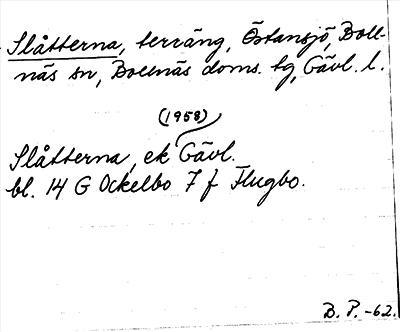 Slåtterna, terräng, Östansjö, Boll-
näs sn, Bollnäs doms. tg, Gävl. l.
(1958)
Slåtterna, ek Gävl.
bl. 14 G Ockelbo 7 f Flugbo.
B. P. -62.